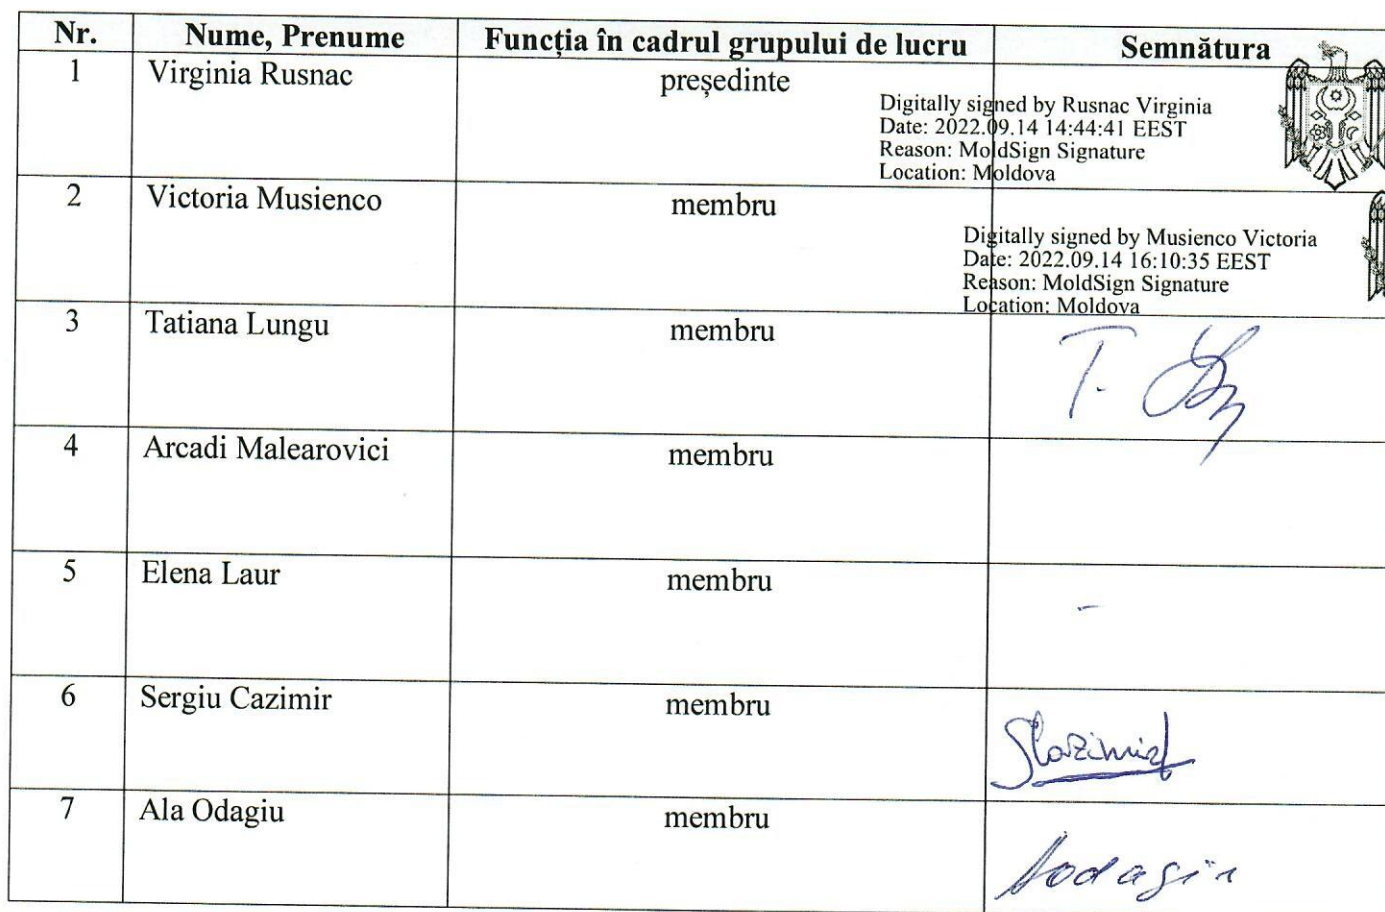 Nr. Nume, Prenume Funcția în cadrul grupului de lucru Semnătura
1 Virginia Rusnac președinte
Digitally signed by Rusnac Virginia
Date: 2022.09.14 14:44:41 EEST
Reason: MoldSign Signature
Location: Moldova
2 Victoria Musienco membru
Digitally signed by Musienco Victoria
Date: 2022.09.14 16:10:35 EEST
Reason: MoldSign Signature
Location: Moldova
3 Tatiana Lungu membru T.
4 Arcadi Malearovici membru
5 Elena Laur membru -
6 Sergiu Cazimir membru
7 Ala Odagiu membru